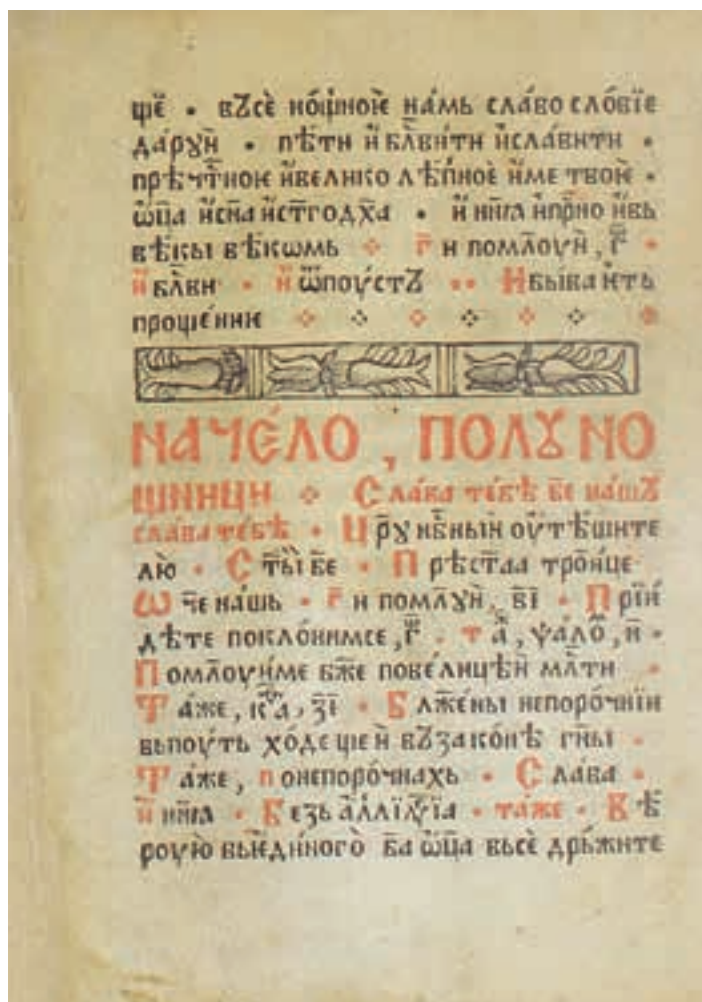 щеѝ • въсе но́щноѥ на́мь сла́во сло́вїе
да́рꙋй • пѣ́ти и҆ бл҃ви́ти и҆сла́вити •
прѣчⷭ҇тноѥ и҆вели́ко лѣ́пноѐ и҆́ме твоѐ •
ѿц҃а и҆сн҃а и҆ст҃годх҃а • и҆ нн҃ꙗ и҆пр҃но и҆вь
вѣ́кы вѣ́кѡмь ⁘ г҃и помл҃оуй , г҃ •
и҆ бл҃ви • и҆ ѿпоу́стꙋ •• И҆быва́ѥть
проще́ниѥ ⁘ ⁘ ⁘ ⁘ ⁘ ⁘ ⁘
НАЧЕ́ЛО , ПОЛꙊНО
ЩНИЦИ ⁘ Сла́ва те́бѣ бе҃ на́шꙋ
сла́ва те́бѣ • Цр҃ꙋ нб҃ныи оу҆тѣ́шите
лю̀ • Ст҃ы́и бе҃ • Прѣст҃аа тро́ице
Ѡч҃е на́шь • г҃и помл҃ꙋй , в҃і • Прїи
дѣ́те покло́нимсе , г҃ • та҃ , ѱало́ⷨ , н҃ •
Помл҃оуи́ме бж҃е пове́лицѣй мл҃ти •
Та́же , ка҃ , з҃і • Блж҃е́ны непоро́чнїи
вьпоу́ть хо́дещеи вꙋзако́нѣ гн҃ы •
Та́же , понепоро́чнахь • Сла́ва •
и҆ нн҃ꙗ • Бе́зь а҆ллїлꙋїа • та́же • Вѣ́
роую вьѥди́ного̀ ба҃ ѿц҃а вьсѐ дрь́жите